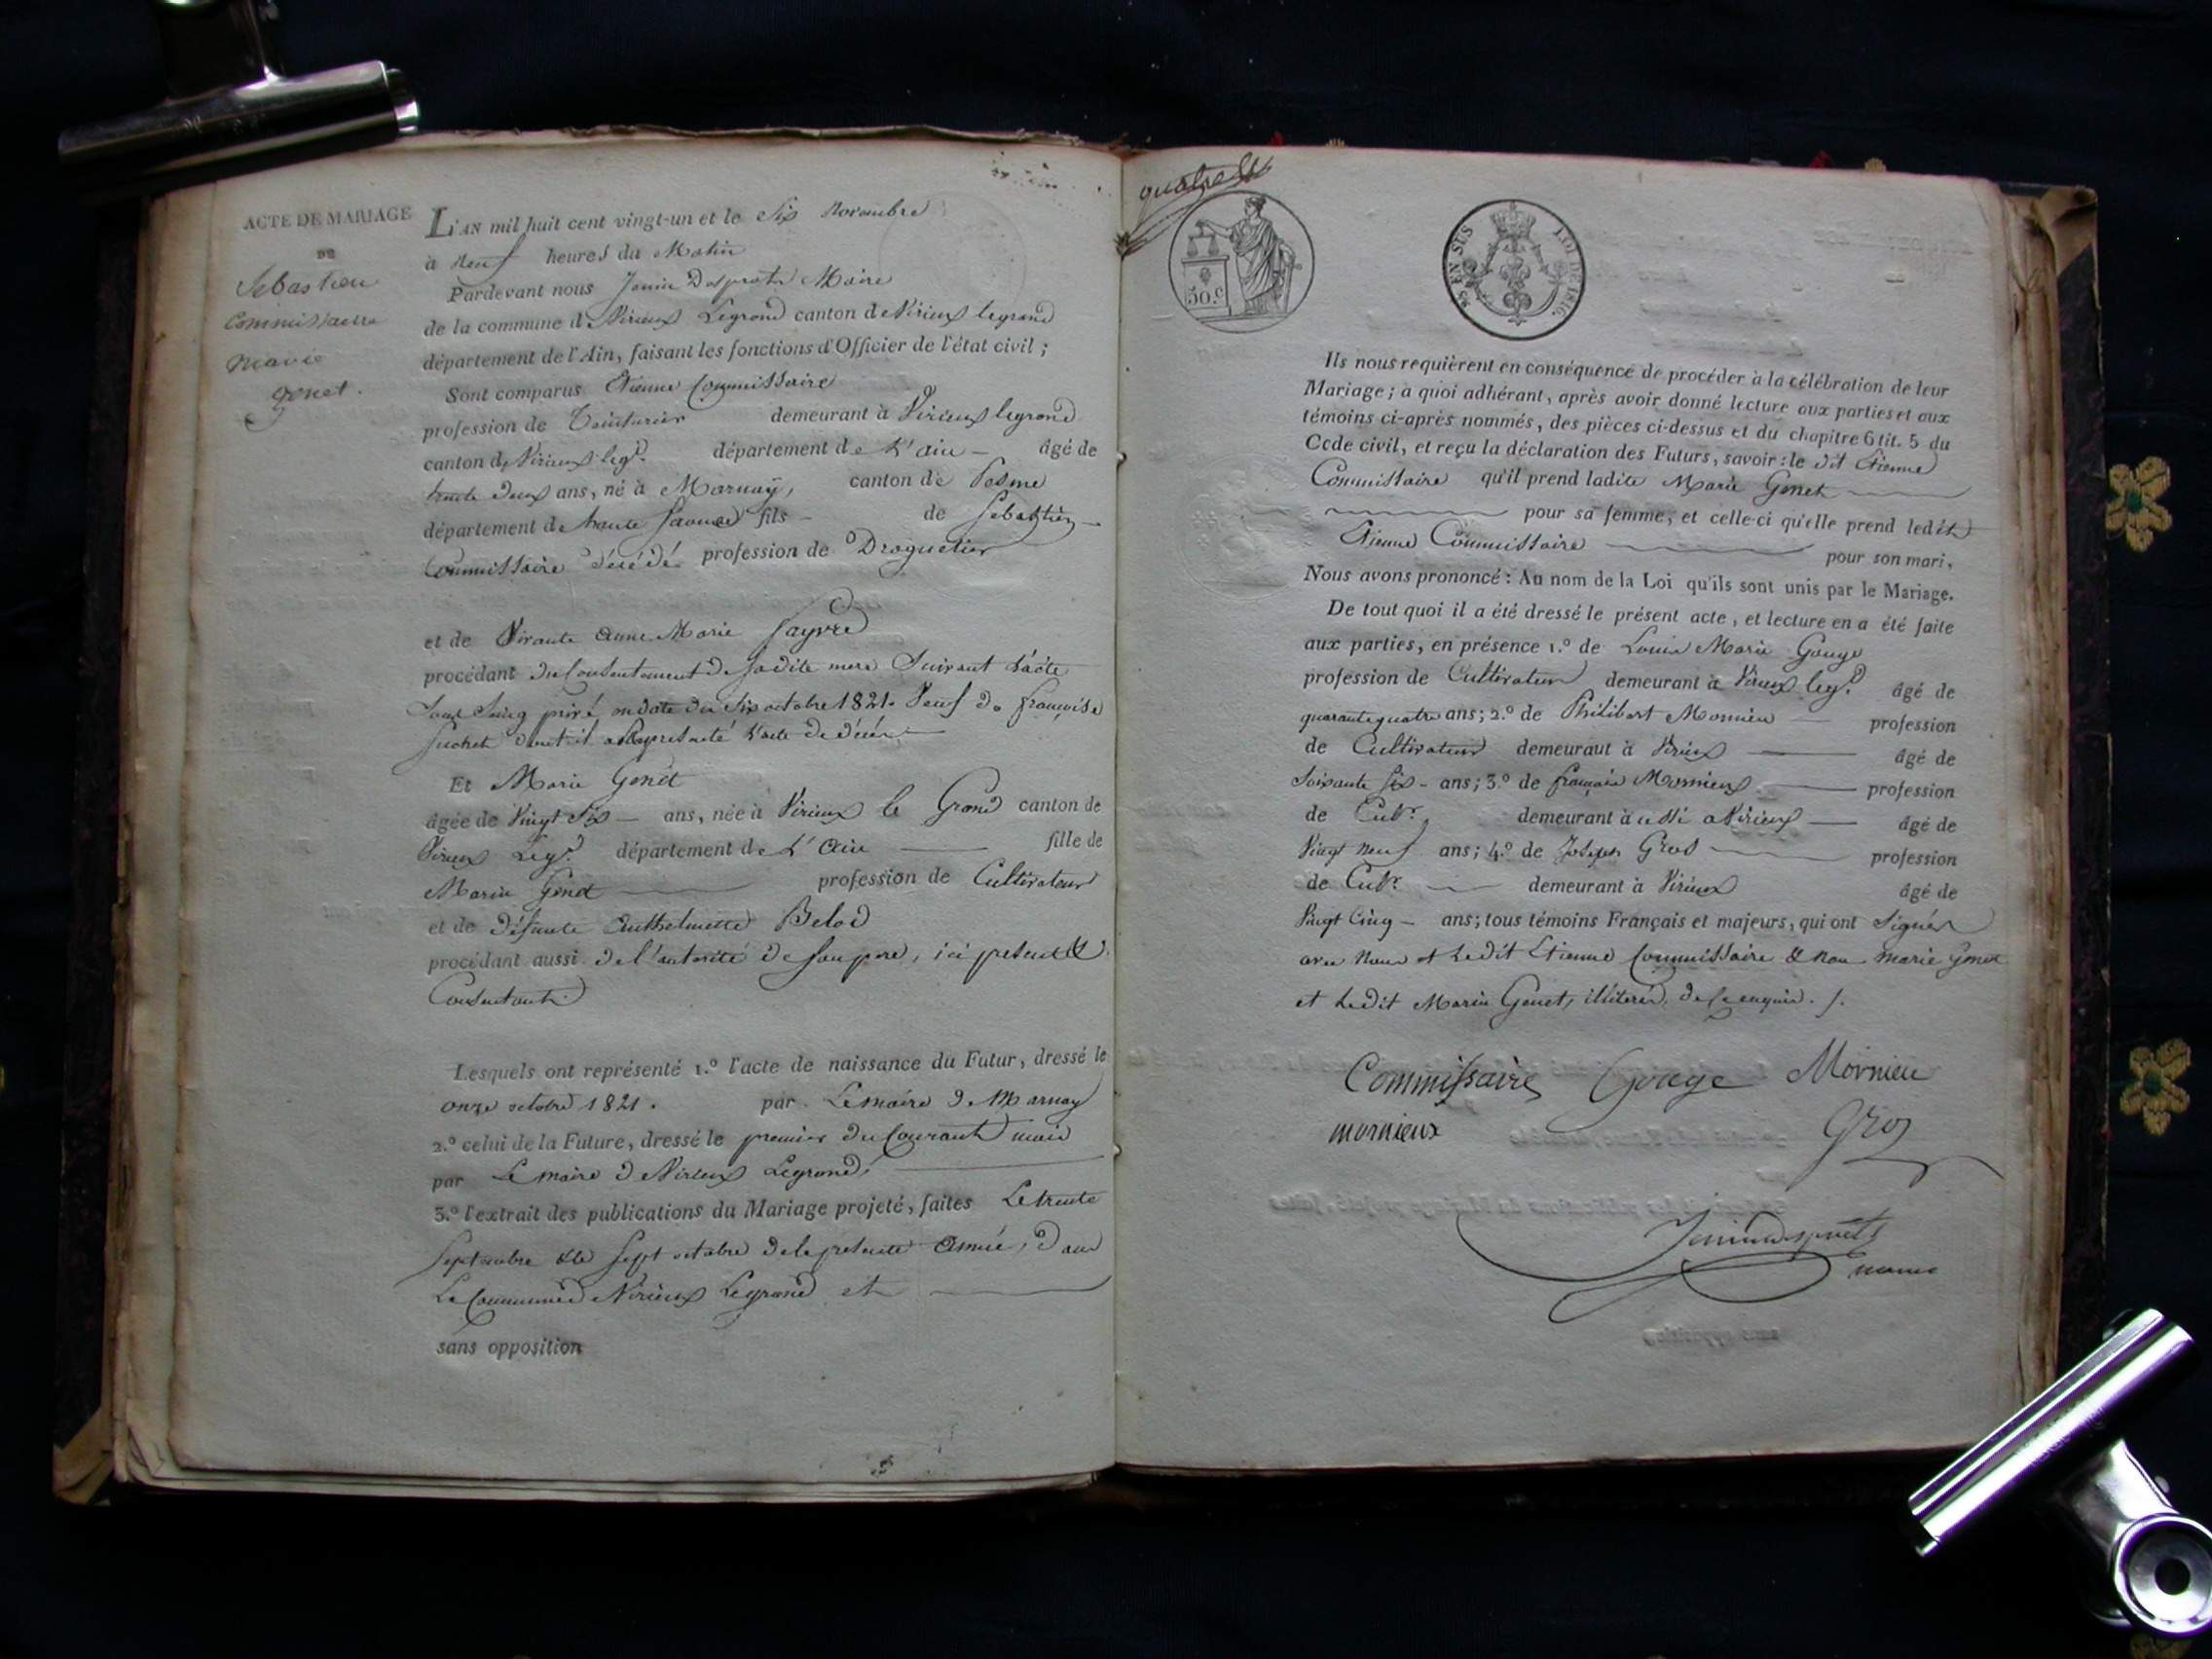 ACTE DE MARIAGE
DE
Sebastien
Commissaire
Marie
genet.
L'AN mil huit cent vingt-un et le Six Novembre
à Neuf heures du Matin
Pardevant nous Jenin Desprots Maire
de la commune de Virieux Legrand canton de Virieux legrand
département de l'Ain, faisant les fonctions d'Officier de l'état civil ;
Sont comparus Etienne Commissaire
profession de Teinturier demeurant à Virieux legrand
canton de Virieux legd. département de L'ain - âgé de
trente deux ans, né à Marnay, canton de Pesme
département de haute Saone fils - de Sebastien
Commissaire décédé profession de Droguetier
et de Vivante Anne Marie Sayvre
procédant du Consentement de sadite mere Suivant L'acte
Sous Seing privé en date du Six octobre 1821. Veuf de françoise
Suchet dont il a représenté l'acte de décès
Et Marie Genet
âgée de Vingt Six - ans, née à Virieux le Grand canton de
Virieux Legd. département de L'Ain fille de
Marin Genet profession de Cultivateur
et de défunte Anthelmette Belod
procédant aussi de l'autorité de Son pere, ici present &
Consentant
Lesquels ont représenté 1.º l'acte de naissance du Futur, dressé le
onze octobre 1821. par Le maire de Marnay
2.º celui de la Future, dressé le premier du Courant mois
par Le maire de Virieux Legrand,
3.º l'extrait des publications du Mariage projeté, faites Le trente
Septembre & le Sept octobre de la presente Année, dans
La Commune de Virieux Legrand et
sans opposition
50.c
25 EN SUS LOI DE 1816.
Ils nous requièrent en conséquence de procéder à la célébration de leur
Mariage ; à quoi adhérant, après avoir donné lecture aux parties et aux
témoins ci-après nommés, des pièces ci-dessus et du chapitre 6 tit. 5 du
Code civil, et reçu la déclaration des Futurs, savoir : le dit Etienne
Commissaire qu'il prend ladite Marie Genet
pour sa femme, et celle-ci qu'elle prend ledit
Etienne Commissaire pour son mari,
Nous avons prononcé : Au nom de la Loi qu'ils sont unis par le Mariage.
De tout quoi il a été dressé le présent acte, et lecture en a été faite
aux parties, en présence 1.º de Louis Marie Gouge
profession de Cultivateur demeurant à Virieux legd. âgé de
quarante quatre ans ; 2.º de Philibert Mornieu profession
de Cultivateur demeurant à Virieux âgé de
Soixante Six - ans ; 3.º de françois Mornieux profession
de Cultr. demeurant à Virieux âgé de
Vingt neuf ans ; 4.º de Joseph Gros profession
de Cultr. demeurant à Virieux âgé de
Vingt Cinq - ans ; tous témoins Français et majeurs, qui ont Signés
avec Nous et Ledit Etienne Commissaire & non marie Genet
et Ledit Marin Genet, illiterés, de ce enquis. /.
Commissaire Gouge Mornieu
mornieux Gros
Jenin desprots
maire